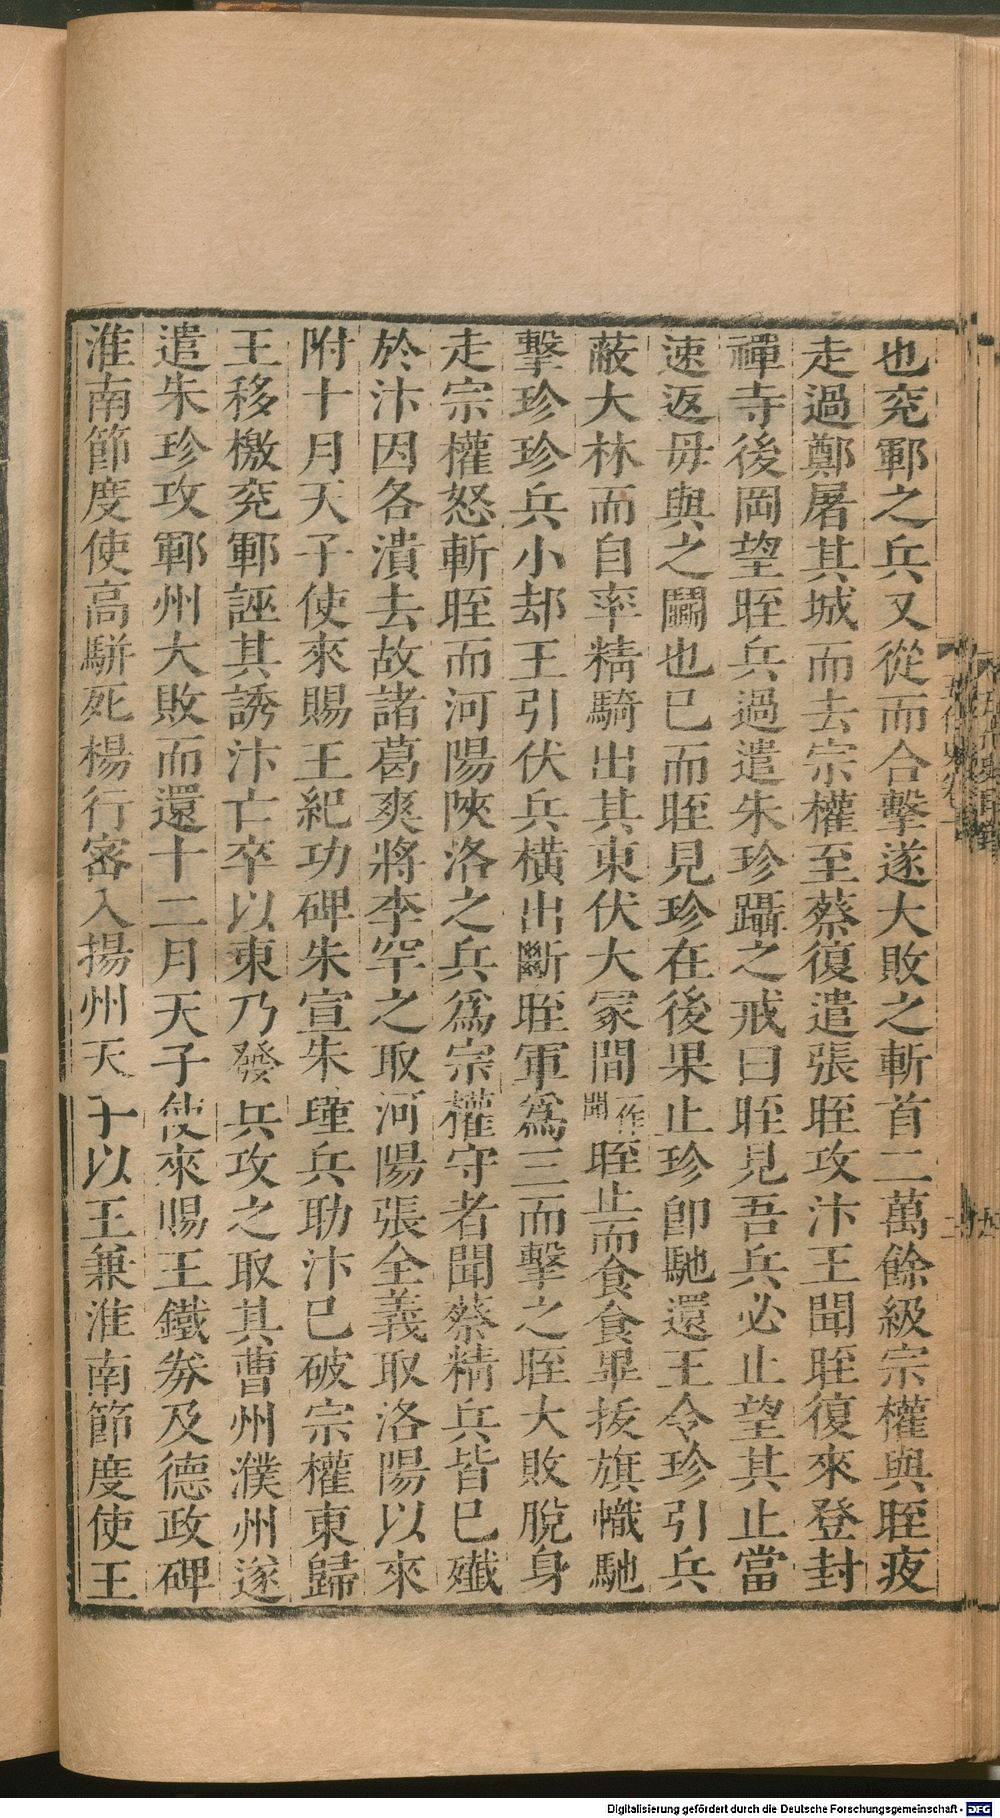 也兖鄆之兵又從而合擊遂大敗之斬首二萬餘級宗權與晊夜
走過鄭屠其城而去宗權至蔡復遣張晊攻汴王聞晊復來登封
禪寺後岡望晊兵過遣朱珍躡之戒曰晊見吾兵必止望其止當
速返毋與之鬭也已而晊見珍在後果止珍卽馳還王令珍引兵
蔽大林而自率精騎出其東伏大冢間一作聞晊止而食食畢拔旗幟馳
擊珍珍兵小却王引伏兵橫出斷晊軍爲三而擊之晊大敗脫身
走宗權怒斬晊而河陽陝洛之兵爲宗權守者聞蔡精兵皆已殲
於汴因各潰去故諸葛爽將李罕之取河陽張全義取洛陽以來
附十月天子使來賜王紀功碑朱宣朱瑾兵助汴已破宗權東歸
王移檄兖鄆誣其誘汴亡卒以東乃發兵攻之取其曹州濮州遂
遣朱珍攻鄆州大敗而還十二月天子使來賜王鐵券及德政碑
淮南節度使高駢死楊行密入揚州天子以王兼淮南節度使王
Digitalisierung gefördert durch die Deutsche Forschungsgemeinschaft - DFG